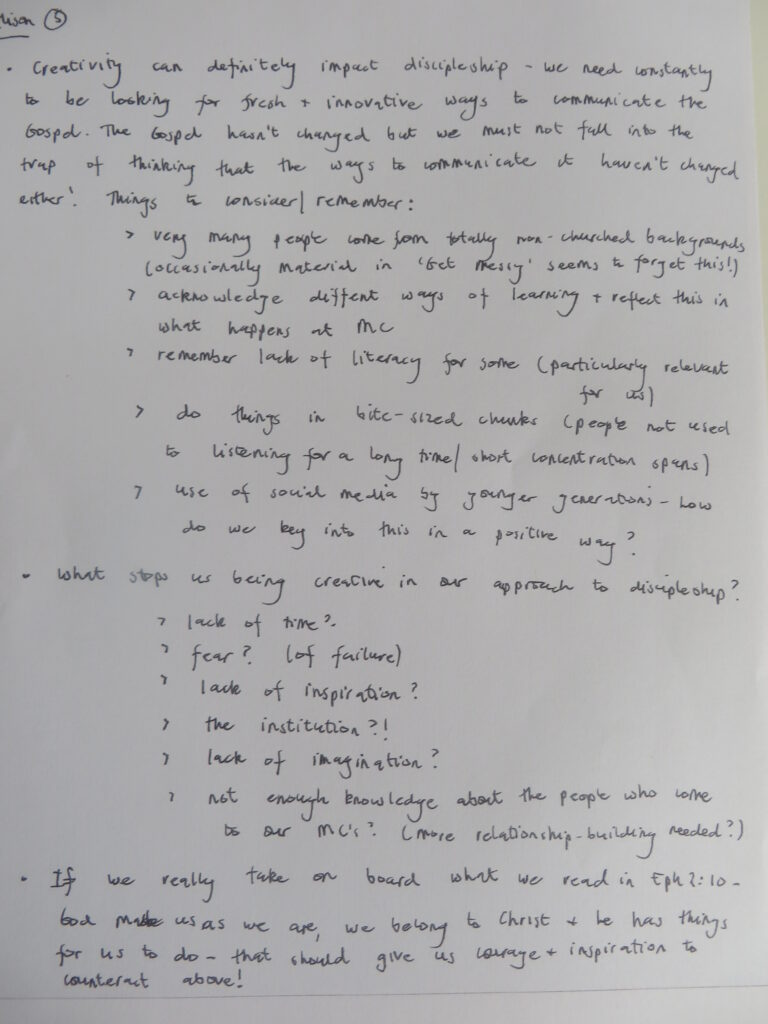 lison ⑤
• Creativity can definitely impact discipleship - we need constantly
to be looking for fresh + innovative ways to communicate the
Gospel. The Gospel hasn't changed but we must not fall into the
trap of thinking that the ways to communicate it haven't changed
either! Things to consider/remember:
> very many people come from totally non-churched backgrounds
(occasionally material in 'Get Messy' seems to forget this!)
> acknowledge diffent ways of learning + reflect this in
what happens at MC
> remember lack of literacy for some (particularly relevant
for us)
> do things in bite-sized chunks (people not used
to listening for a long time/short concentration spans)
> use of social media by younger generations - how
do we key into this in a positive way?
• What stops us being creative in our approach to discipleship?
> lack of time?
> fear? (of failure)
> lack of inspiration?
> the institution?!
> lack of imagination?
> not enough knowledge about the people who come
to our MC's? (more relationship-building needed?)
• If we really take on board what we read in Eph 2:10 -
God made us as we are, we belong to Christ + he has things
for us to do - that should give us courage + inspiration to
counteract above!